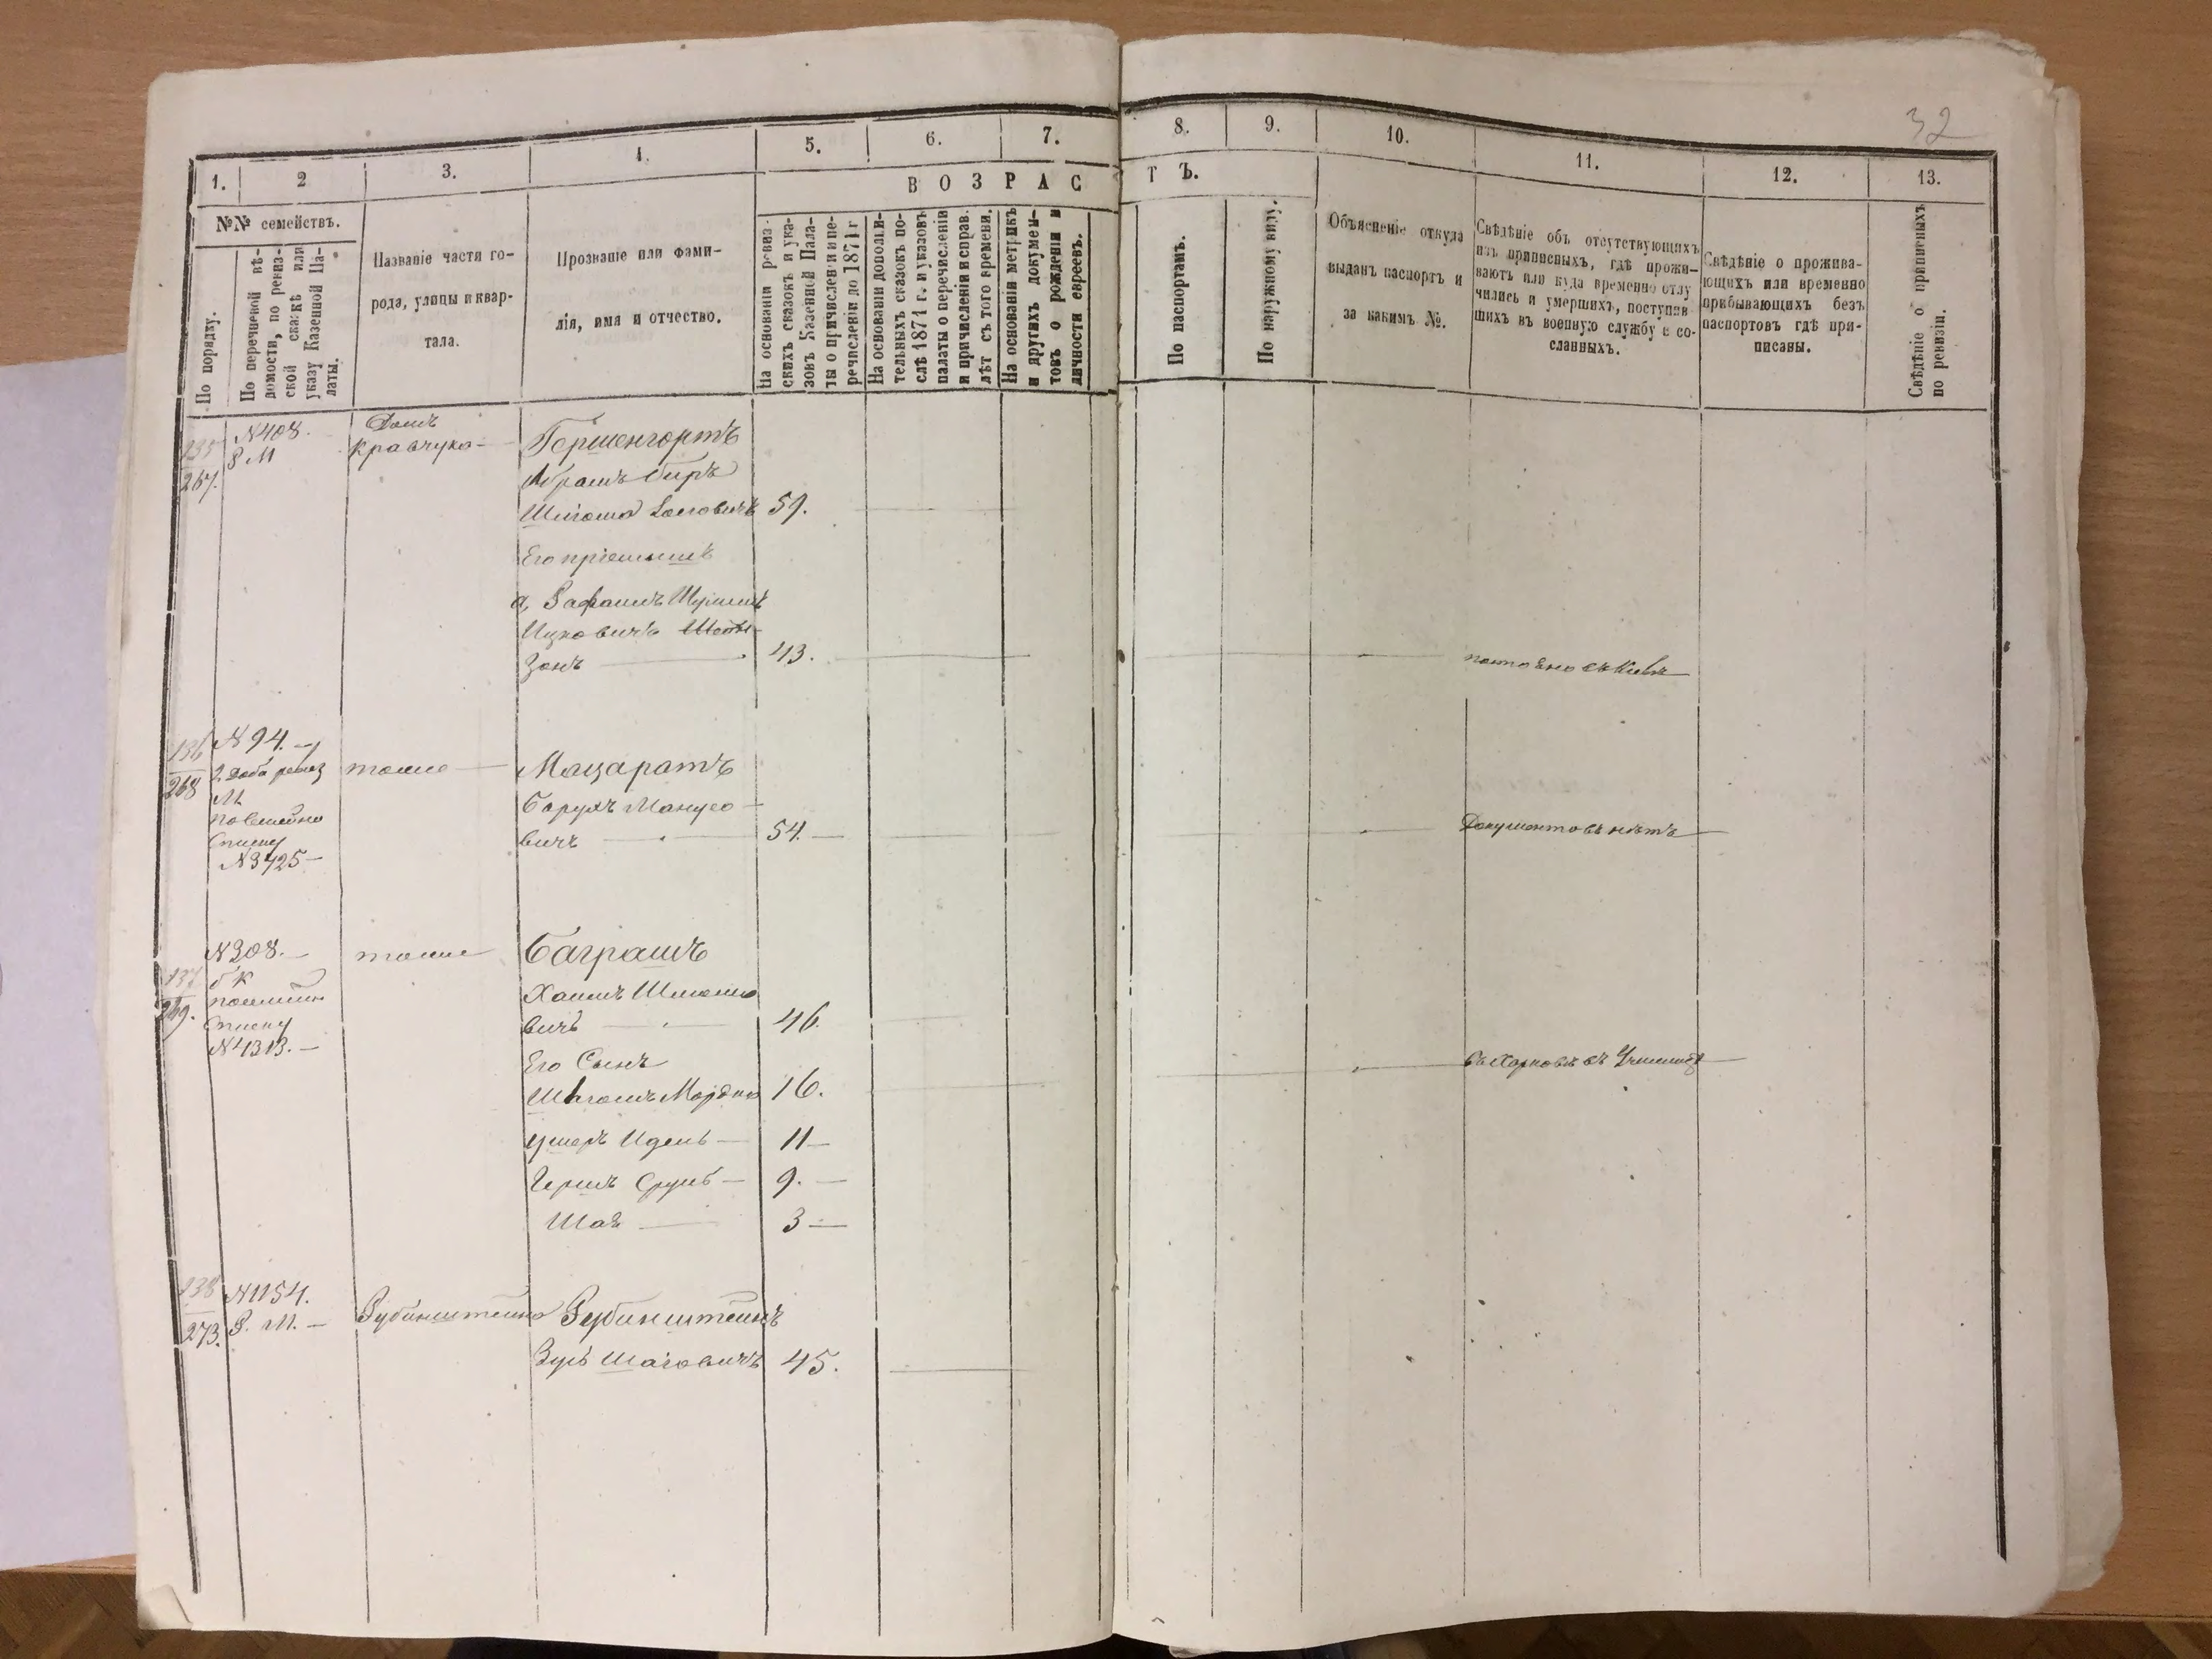 32
1.
2
3.
4.
5.
6.
7.
8.
9.
10.
11.
12.
13.
№№ семействъ.
В О З Р А С
Т Ъ.
По порядку.
По перечневой вѣ-
домости, по ревиз-
ской сказкѣ или
указу Казенной Па-
латы.
Названіе части го-
рода, улицы и квар-
тала.
Прозваніе или фами-
лія, имя и отчество.
На основаніи ревиз-
скихъ сказокъ и ука-
зовъ Казенной Пала-
ты о причисленіи и пе-
речисленіи до 1874 г
На основаніи дополни-
тельныхъ сказокъ по-
слѣ 1874 г. и указовъ
палаты о перечисленіи
и причисленіи и справ.
лѣт съ того времени.
На основаніи метрикъ
и другихъ докумен-
товъ о рожденіи и
личности евреевъ.
По паспортамъ.
По наружному виду.
Объясненіе откуда
выданъ паспортъ и
за какимъ №.
Свѣдѣніе объ отсутствующихъ
изъ приписныхъ, гдѣ прожи-
ваютъ или куда временно отлу
чились и умершихъ, поступив-
шихъ въ военную службу и со-
сланныхъ.
Свѣдѣніе о прожива-
ющихъ или временно
прибывающихъ безъ
паспортовъ гдѣ при-
писаны.
Свѣдѣніе о приписныхъ
по ревизіи.
135
267.
N 408.
Р М
Домъ
Кравчука
Гершенгортъ
Абрамъ Беръ
Іосіовичъ 59.
Его пріемышъ
Ицковичъ
зонъ 43.
136
268
N 94.
2 доба ревиз
М
посемейно
списку
N 3725
тоже
Мацаратъ
Борухъ Манусо
вичъ 54.
Документовъ нѣтъ
137
269.
N 308.
б К
списку
N 4313.
тоже
Баграшъ
Хаимъ
вичъ 46.
Его Сынъ
Мордко 16.
Ушеръ Идель 11
Гершъ Сруль 9.
Шая 3
въ Харковѣ
138
273.
N 1154.
Р. М.
Рубинштейна
Рубинштейнъ
Зусь 45.